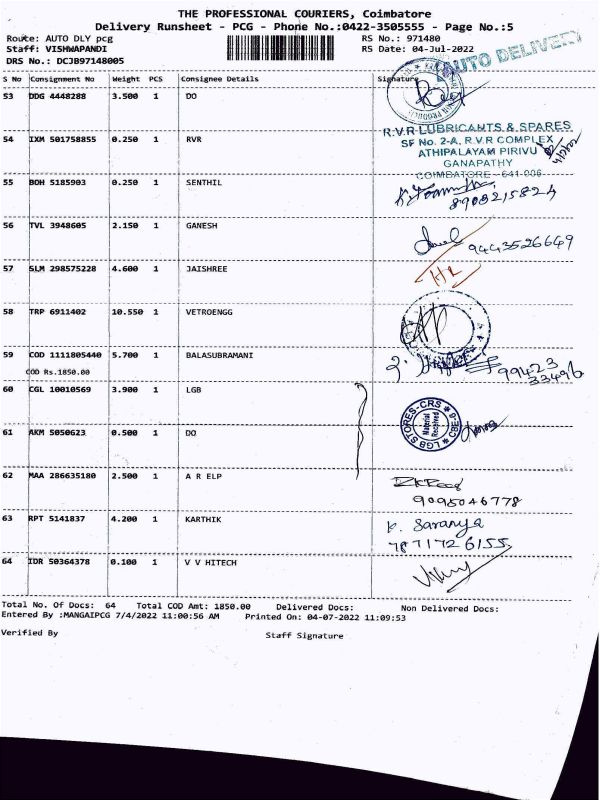 THE PROFESSIONAL COURIERS, Coimbatore
Delivery Runsheet - PCG - Phone No.:0422-3505555 - Page No.:5
Route: AUTO DLY pcg RS No.: 971480
Staff: VISHWAPANDI RS Date: 04-Jul-2022
DRS No.: DCJB97148005
AUTO DELIVERY
S No Consignment No Weight PCS Consignee Details Signature
53 DDG 4448288 3.500 1 DO
54 IXM 501758855 0.250 1 RVR
R.V.R LUBRICANTS & SPARES
SF No. 2-A, R.V.R COMPLEX
ATHIPALAYAM PIRIVU
GANAPATHY
COIMBATORE - 641 006
55 BOH 5185903 0.250 1 SENTHIL
8903215824
56 TVL 3948605 2.150 1 GANESH
9443526649
57 SLM 298575228 4.600 1 JAISHREE
58 TRP 6911402 10.550 1 VETROENGG
59 COD 1111805440 5.700 1 BALASUBRAMANI
COD Rs.1850.00
99423
33496
60 CGL 10010569 3.900 1 LGB
LGB STORES-CRS CBE-6
Material Received
61 AKM 5050623 0.500 1 DO
62 MAA 286635180 2.500 1 A R ELP
9095046778
63 RPT 5141837 4.200 1 KARTHIK
P. Saranya
7871726155
64 IDR 50364378 0.100 1 V V HITECH
Total No. Of Docs: 64 Total COD Amt: 1850.00 Delivered Docs: Non Delivered Docs:
Entered By :MANGAIPCG 7/4/2022 11:00:56 AM Printed On: 04-07-2022 11:09:53
Verified By Staff Signature